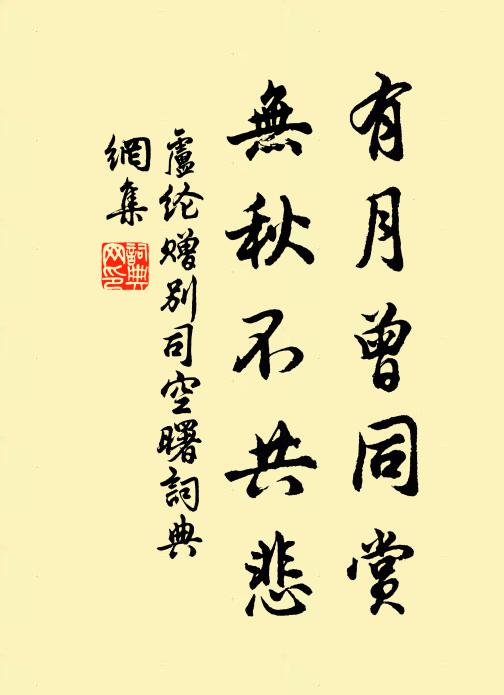 有月曾同赏
無秋不共悲
盧纶贈别司空曙詞典
網集
詞典
网印